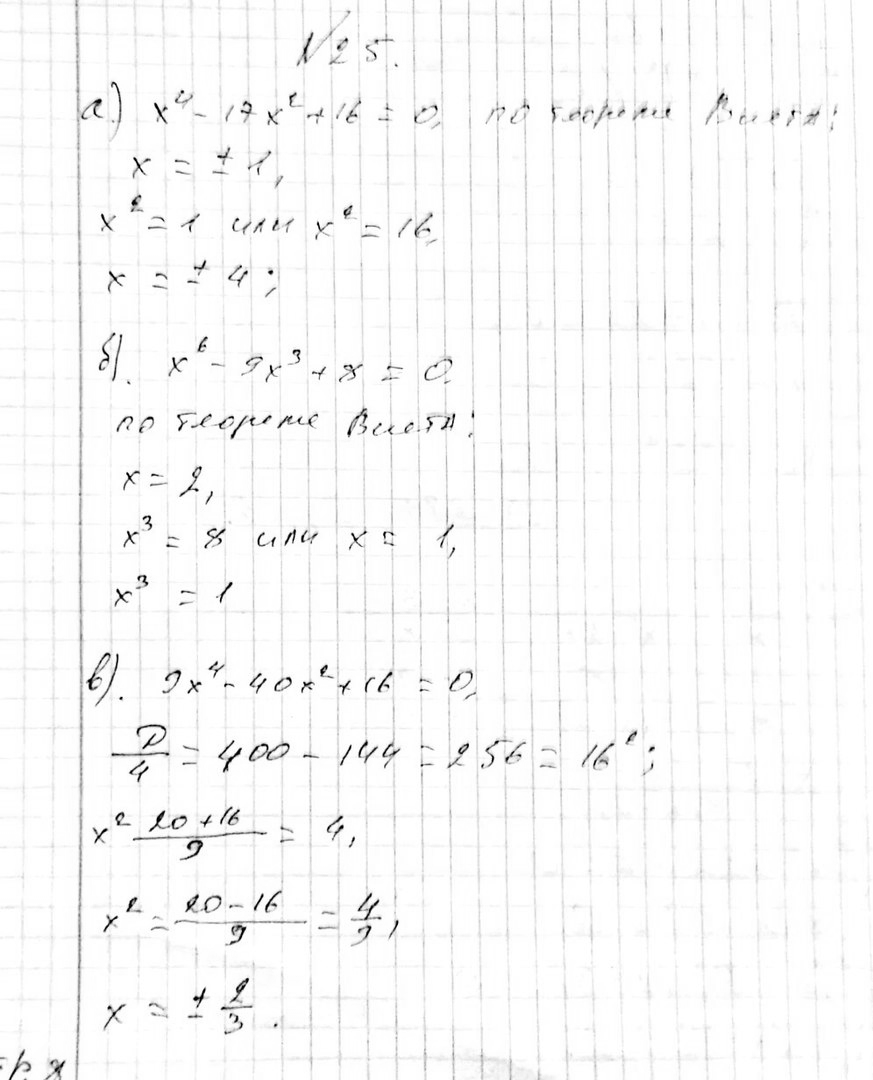 №25.
а.) x⁴ - 17x² + 16 = 0, по теореме Виета:
x = ± 1,
x² = 1 или x² = 16,
x = ± 4;
б). x⁶ - 9x³ + 8 = 0.
по теореме Виета:
x = 2,
x³ = 8 или x = 1,
x³ = 1
в). 9x⁴ - 40x² + 16 = 0,
D/4 = 400 - 144 = 256 = 16²;
x² (20+16)/9 = 4,
x² = (20-16)/9 = 4/9,
x = ± 2/3.